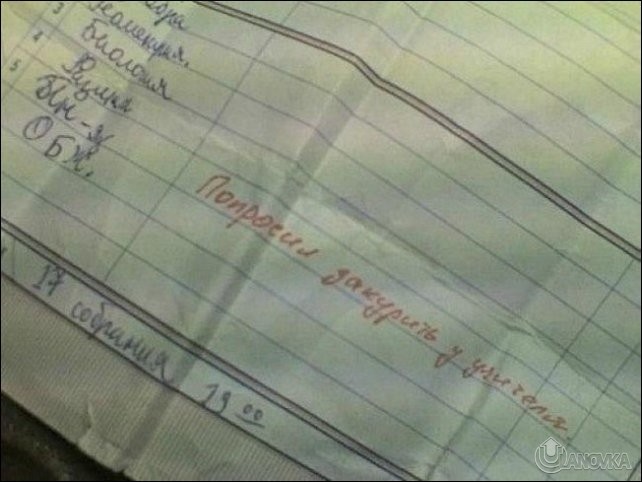 3
Геометрия
4 Биология
Физика
5
Ин-я
ОБЖ.
Попросил закурить у учителя
17 собрания 19 00
UANOVKA